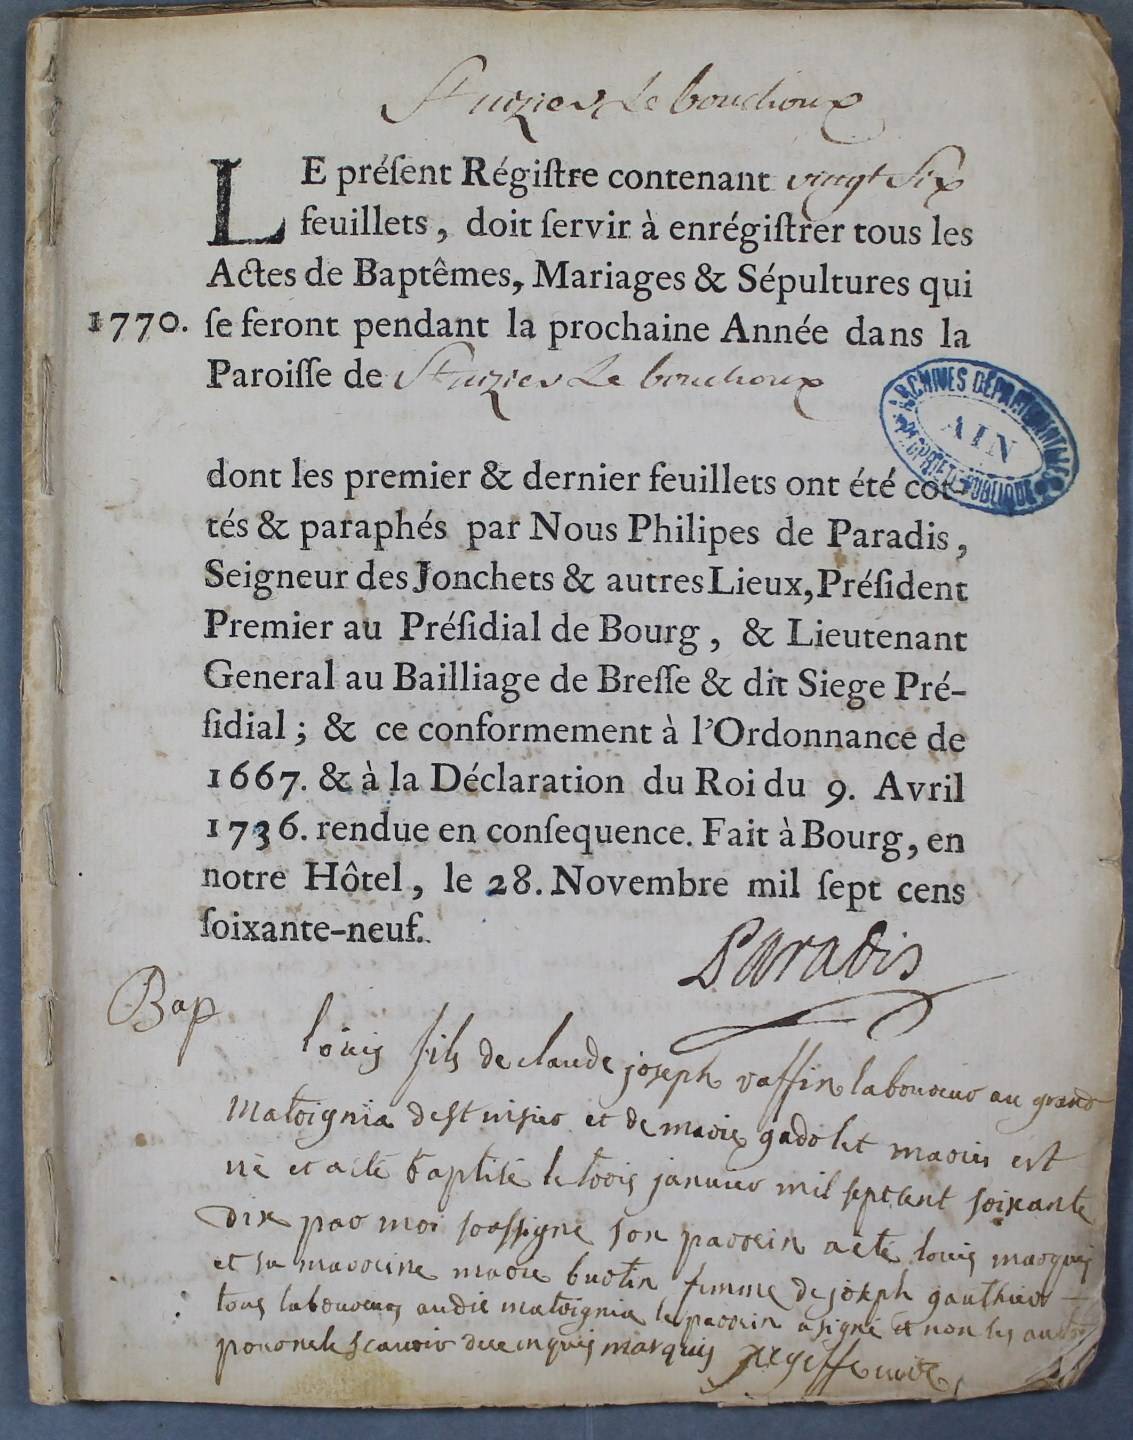 St nizier Le bouchoux
LE préſent Régiſtre contenant vingt Six
feuillets, doit ſervir à enrégiſtrer tous les
Actes de Baptêmes, Mariages & Sépultures qui
1770. ſe feront pendant la prochaine Année dans la
Paroiſſe de St nizier Le bouchoux
ARCHIVES DÉPARTEMENTALES
AIN
PROPRIÉTÉ PUBLIQUE
dont les premier & dernier feuillets ont été cot-
tés & paraphés par Nous Philipes de Paradis,
Seigneur des Jonchets & autres Lieux, Préſident
Premier au Préſidial de Bourg, & Lieutenant
General au Bailliage de Breſſe & dit Siege Pré-
ſidial; & ce conformement à l'Ordonnance de
1667. & à la Déclaration du Roi du 9. Avril
1736. rendue en conſequence. Fait à Bourg, en
notre Hôtel, le 28. Novembre mil ſept cens
ſoixante-neuf.
Paradis
Bap
louis fils de claude joseph vaffin laboureur au grand
matrignia de st nisier et de marie gadolet mariés est
né et a été baptisé le trois janvier mil sept cent soixante
dix par moi soussigné son parrein a été louis marquis
et sa marreine marie buotin femme de joseph gauthier
tous laboureurs audit matrignia le parrein a signé et non les autres
pour ne le scavoir de ce enquis marquis